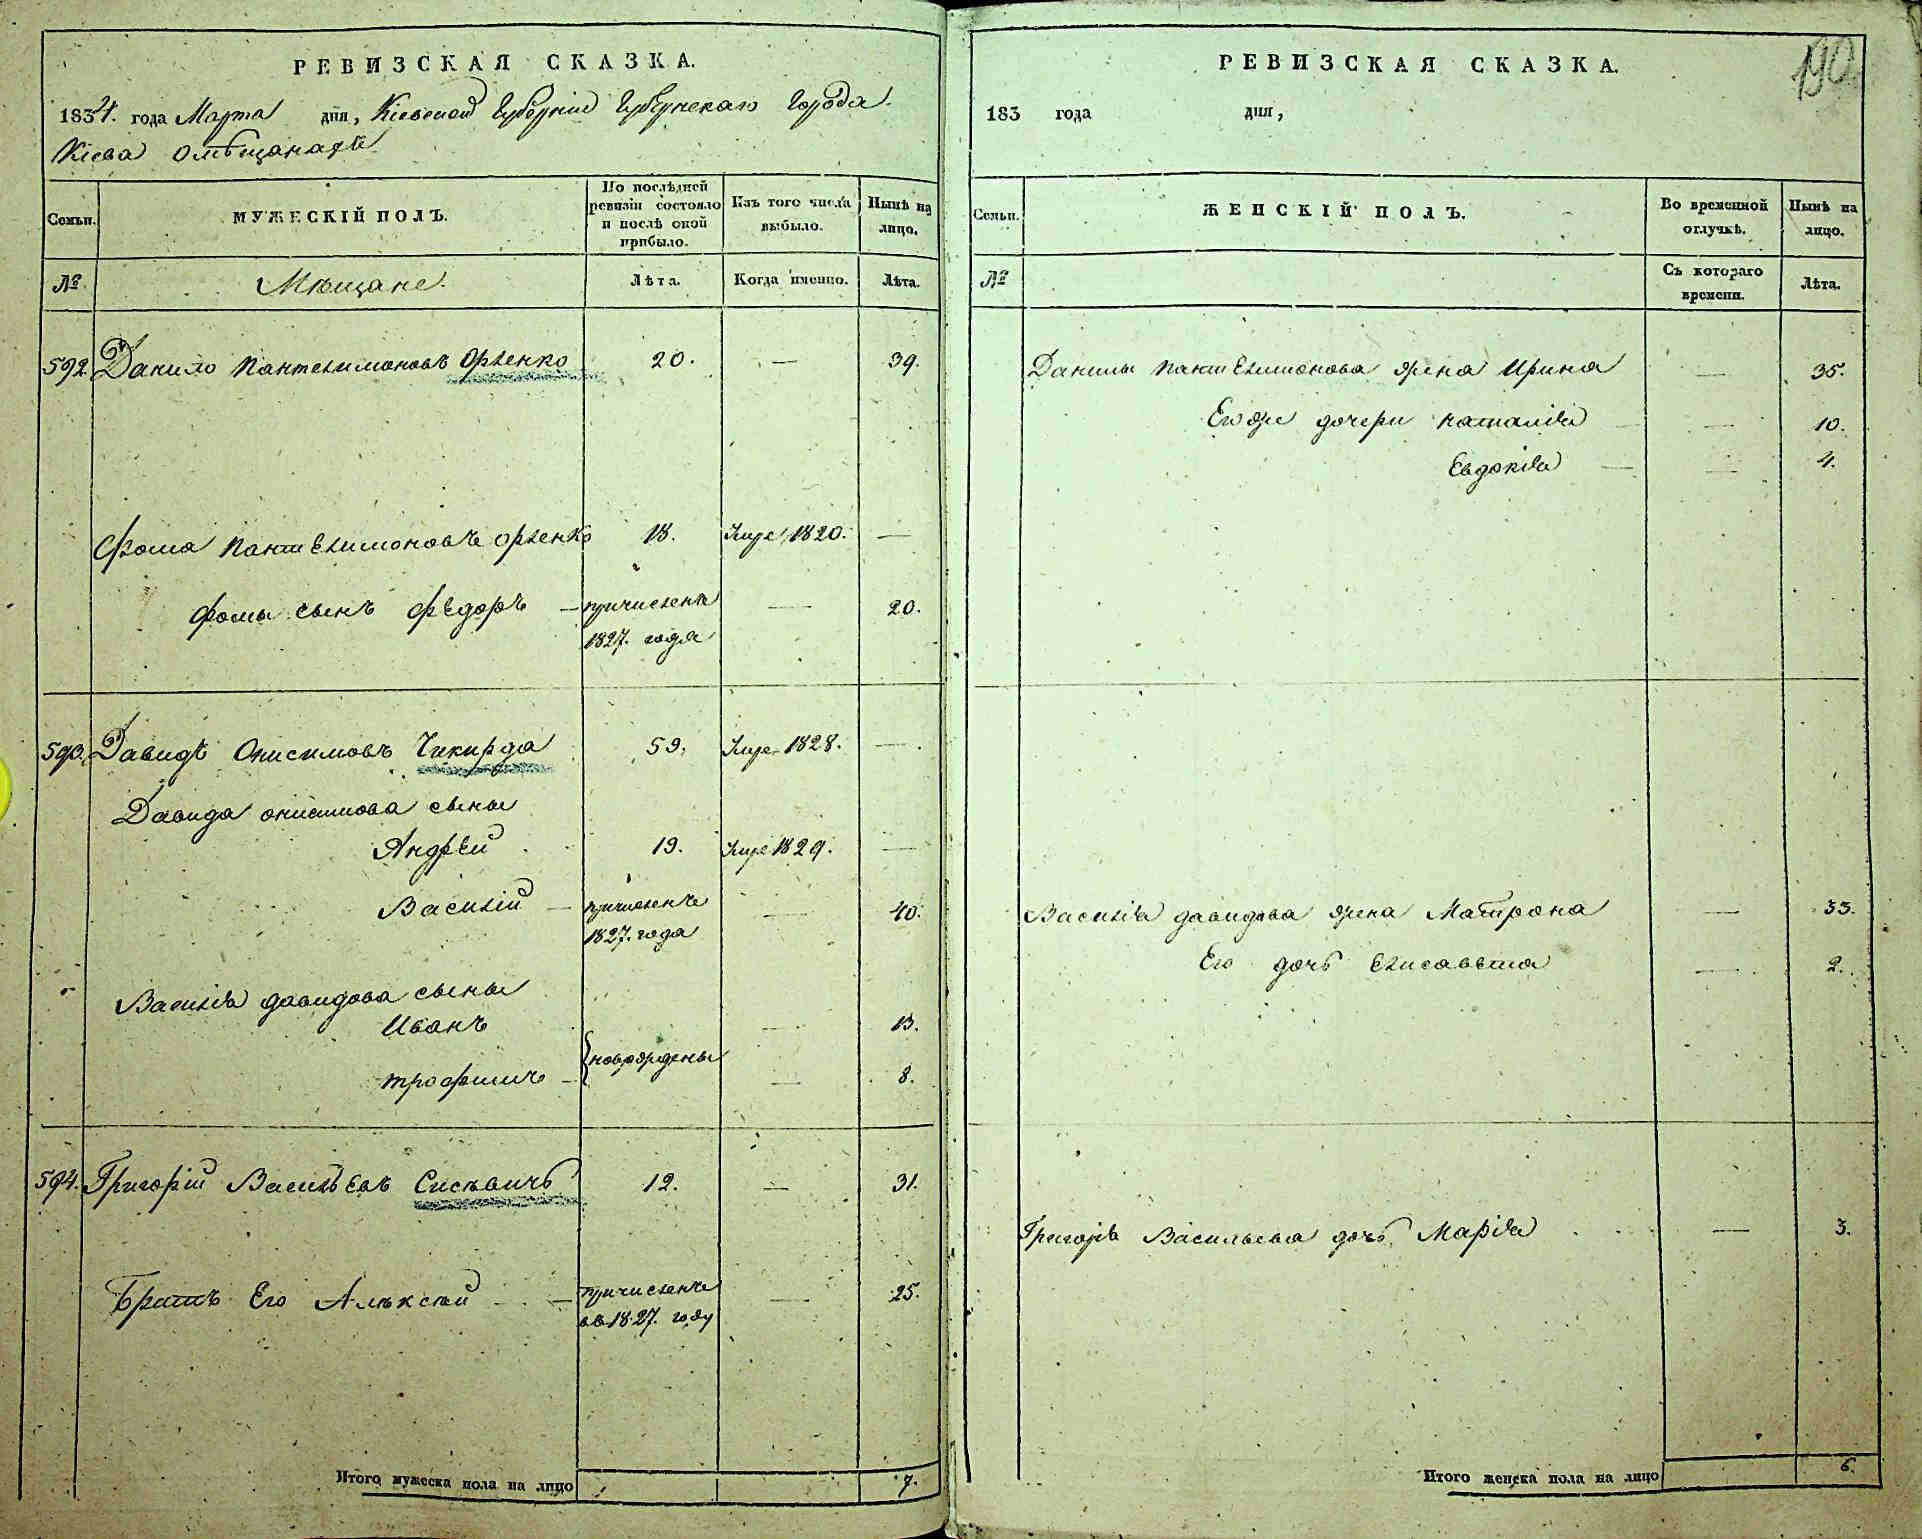 РЕВИЗСКАЯ СКАЗКА.
1834. года Марта дня, Кіевской Губерніи Губернскаго Города
Кіева о мѣщанахъ
Семьи.
МУЖЕСКІЙ ПОЛЪ.
По послѣдней
ревизіи состояло
и послѣ оной
прибыло.
Изъ того числа
выбыло.
Нынѣ на
лицо.
№
Мѣщане.
Лѣта.
Когда именно.
Лѣта.
592. Данило Пантелимоновъ Орленко 20. — 39.
Фома Пантелимоновъ Орленко 18. Умре 1820. —
Фомы сынъ Федоръ — причисленъ — 20.
1827. года
593. Давидъ Онисимовъ Чикирда 59. Умре 1828. —
Давида Онисимова сыны
Андрей 19. Умре 1829. —
Василій — причисленъ — 40.
1827. года
Василія Давидова сыны
Иванъ — 13.
новорождены
Трофимъ — — 8.
594. Григорій Васильевъ 12. — 31.
Братъ Его Алексѣй — причисленъ — 25.
въ 1827. году
Итого мужеска пола на лицо 7.
190
РЕВИЗСКАЯ СКАЗКА.
183 года дня,
Семьи.
ЖЕНСКІЙ ПОЛЪ.
Во временной
отлучкѣ.
Нынѣ на
лицо.
№
Съ котораго
времени.
Лѣта.
Данилы Пантелимонова жена Ирина — 35.
Его же дочери Наталія — 10.
Евдокія — 4.
Василія Давидова жена Матрона — 33.
Его дочь Елисавета — 2.
Григорія Васильева дочь Марія — 3.
Итого женска пола на лицо 6.